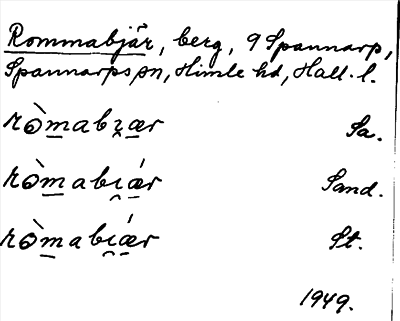 Rommabjär, berg, 9 Spannarp,
Spannarps sn, Himle hd, Hall. l.
ròmabɩ̯ær Sa.
ròmabɩ̯ǽr Sand.
ròmabɩ̯ǽr St.
1949.